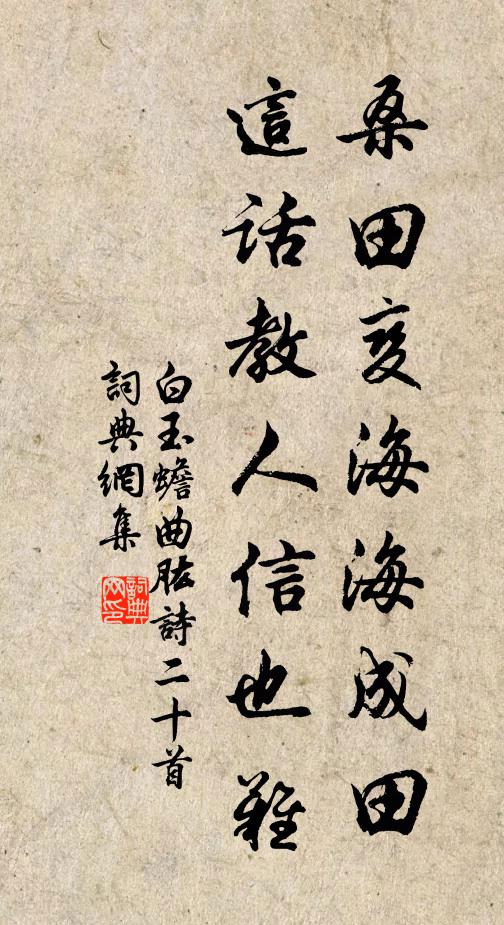 桑田变海海成田
這话教人信也難
白玉蟾曲肱詩二十首
詞典網集
詞典
网印